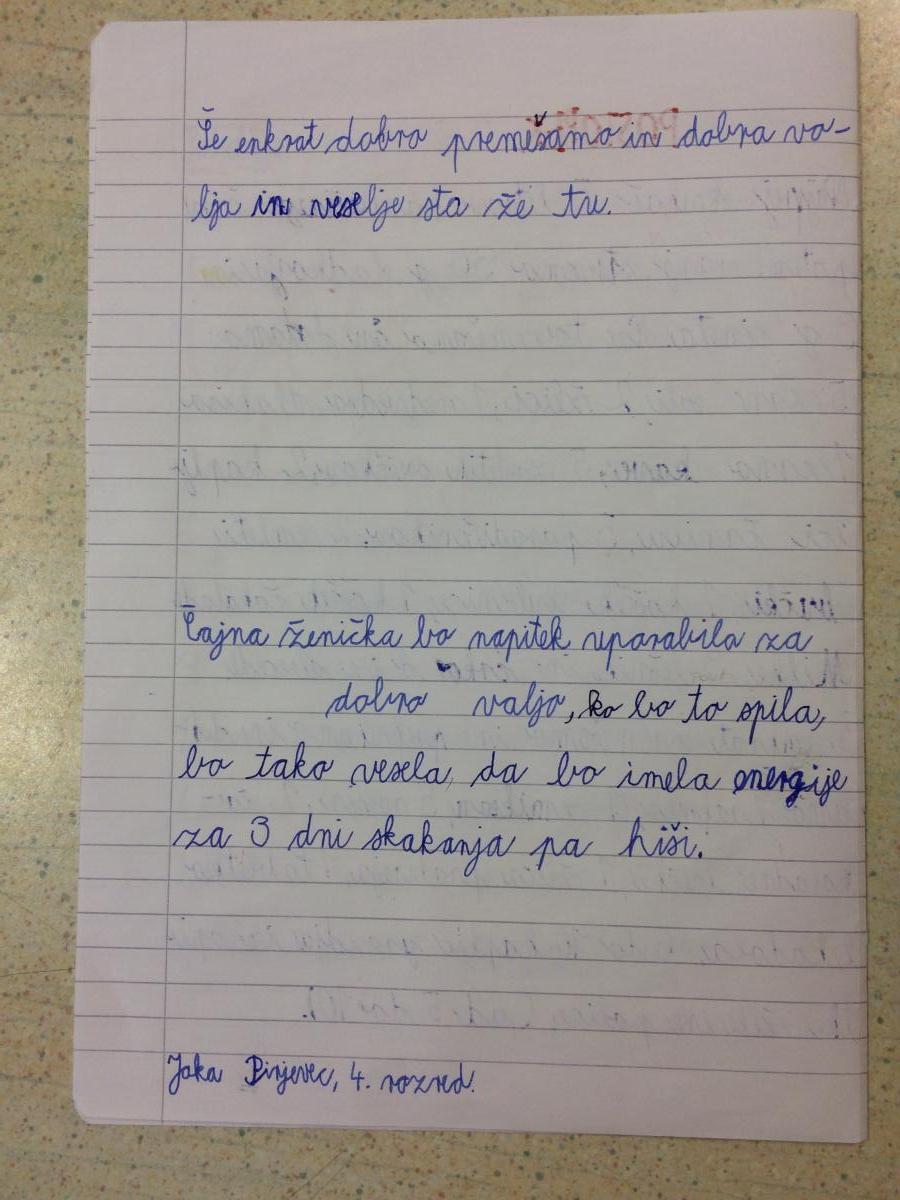 Še enkrat dobro premešamo in dobra vo-
lja in veselje sta že tu.
Čajna ženička bo napitek uporabila za
dobro voljo, ko bo to spila,
bo tako vesela, da bo imela energije
za 3 dni skakanja po hiši.
Jaka Pirjevec, 4. razred